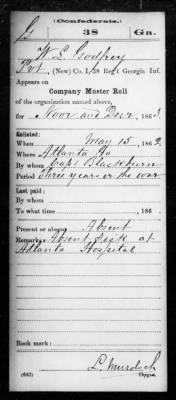 (Confederate.)
G 38 Ga.
W. L. Godfrey
Pvt, (New) Co. I, 38 Reg't Georgia Inf.
Appears on
Company Muster Roll
of the organization named above,
for Novr and Decr, 1863.
Enlisted:
When May 15, 1862.
Where Atlanta Ga
By whom Capt Blackburn
Period Three years or the war
Last paid:
By whom
To what time , 186 .
Present or absent Absent
Remarks: Absent Sick at
Atlanta Hospital
Book mark:
L. Murdoch
(642) Copyist.